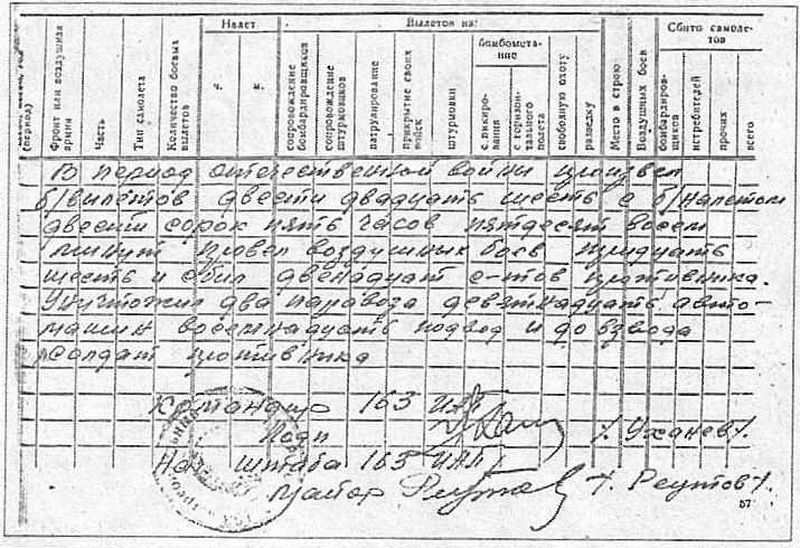 Налет
Вылетов на:
Сбито самоле-
тов
бомбомета-
ние
(период)
Фронт или воздушная
армия
Часть
Тип самолета
Количество боевых
вылетов
ч.
м.
сопровождение
бомбардировщиков
сопровождение
штурмовиков
патрулирование
прикрытие своих
войск
штурмовки
с пикиро-
вания
с горизон-
тального
полета
свободную охоту
разведку
Место в строю
Воздушных боев
бомбардиров-
щиков
истребителей
прочих
всего
В период отечественной войны произвел
б/вылетов двести двадцать шесть с б/налетом
двести сорок пять часов пятдесят восем
минут провел воздушных боев тридцать
шесть и сбил двенадцат с-тов противника.
Уничтожил два паравоза девятнадцать авто-
машин восемнадцать подвод и до взвода
солдат противника
Командир 163 ИАП
Подп /Уханев/.
Нач штаба 163 ИАП
майор /Реутов/.
57